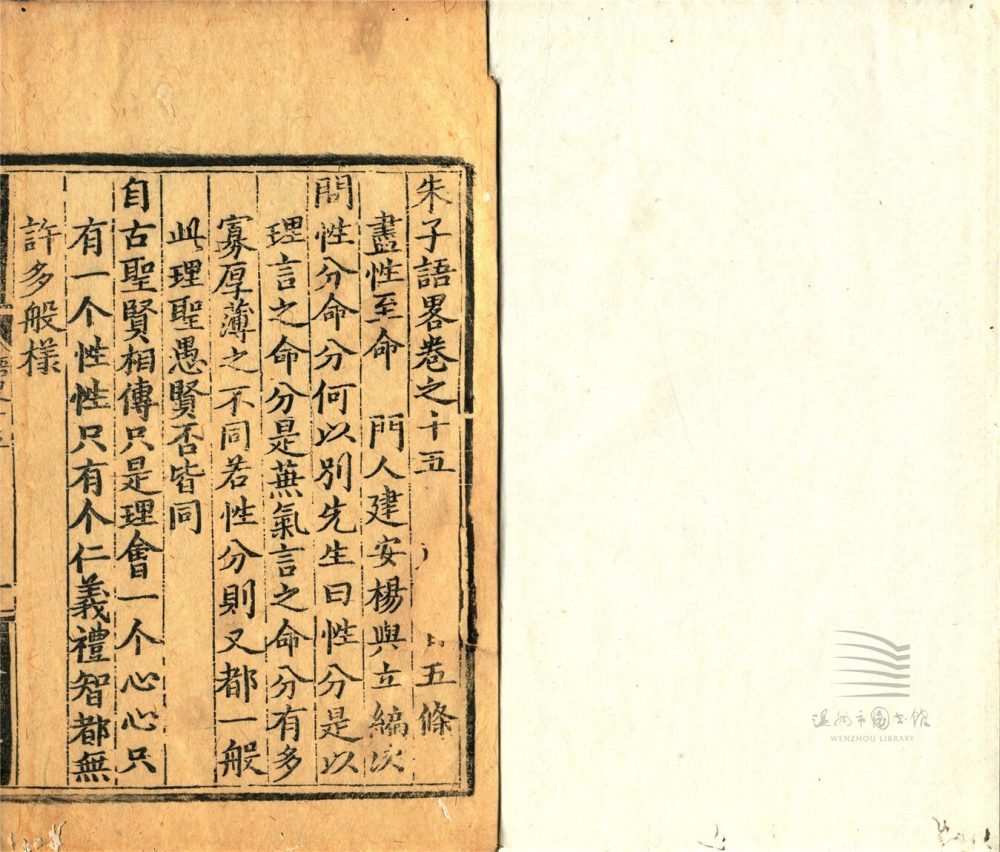 朱子語畧卷之十五 五條
盡性至命 門人建安楊與立編次
問性分命分何以別先生曰性分是以
理言之命分是蕪氣言之命分有多
寡厚薄之不同若性分則又都一般
此理聖愚賢否皆同
自古聖賢相傳只是理會一个心心只
有一个性性只有个仁義禮智都無
許多般樣
温州市图书馆
WENZHOU LIBRARY